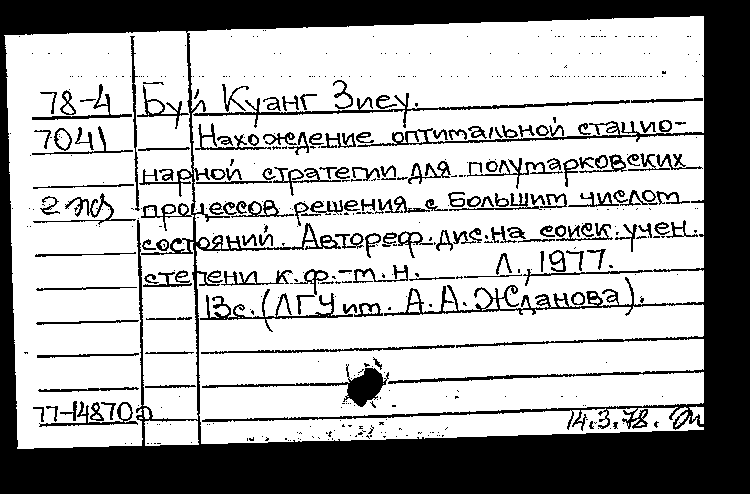 78-4 Буй Куанг Зиеу.
7041 Нахождение оптимальной стацио-
нарной стратегии для полумарковских
2 экз процессов решения с большим числом
состояний. Автореф. дис. на соиск. учен.
степени к.ф.-м.н. Л., 1977.
13с. (ЛГУ им. А.А. Жданова).
77-14870а
14.3.78.